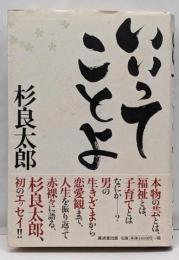 いいって
ことよ
杉良太郎
本物の芸とは、
福祉とは、
子育てとは
なにか——?
男の
生きざまから
恋愛観まで、
人生を振り返って
赤裸々に語る、
杉良太郎、
初のエッセイ!!
廣済堂出版